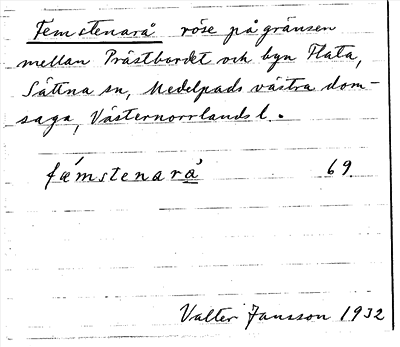 Femstenarå röse på gränsen
mellan Prästbordet och byn Flata,
Sättna sn, Medelpads västra dom-
saga, Västernorrlands l.
fémstenarå̀ 69
Valter Jansson 1932